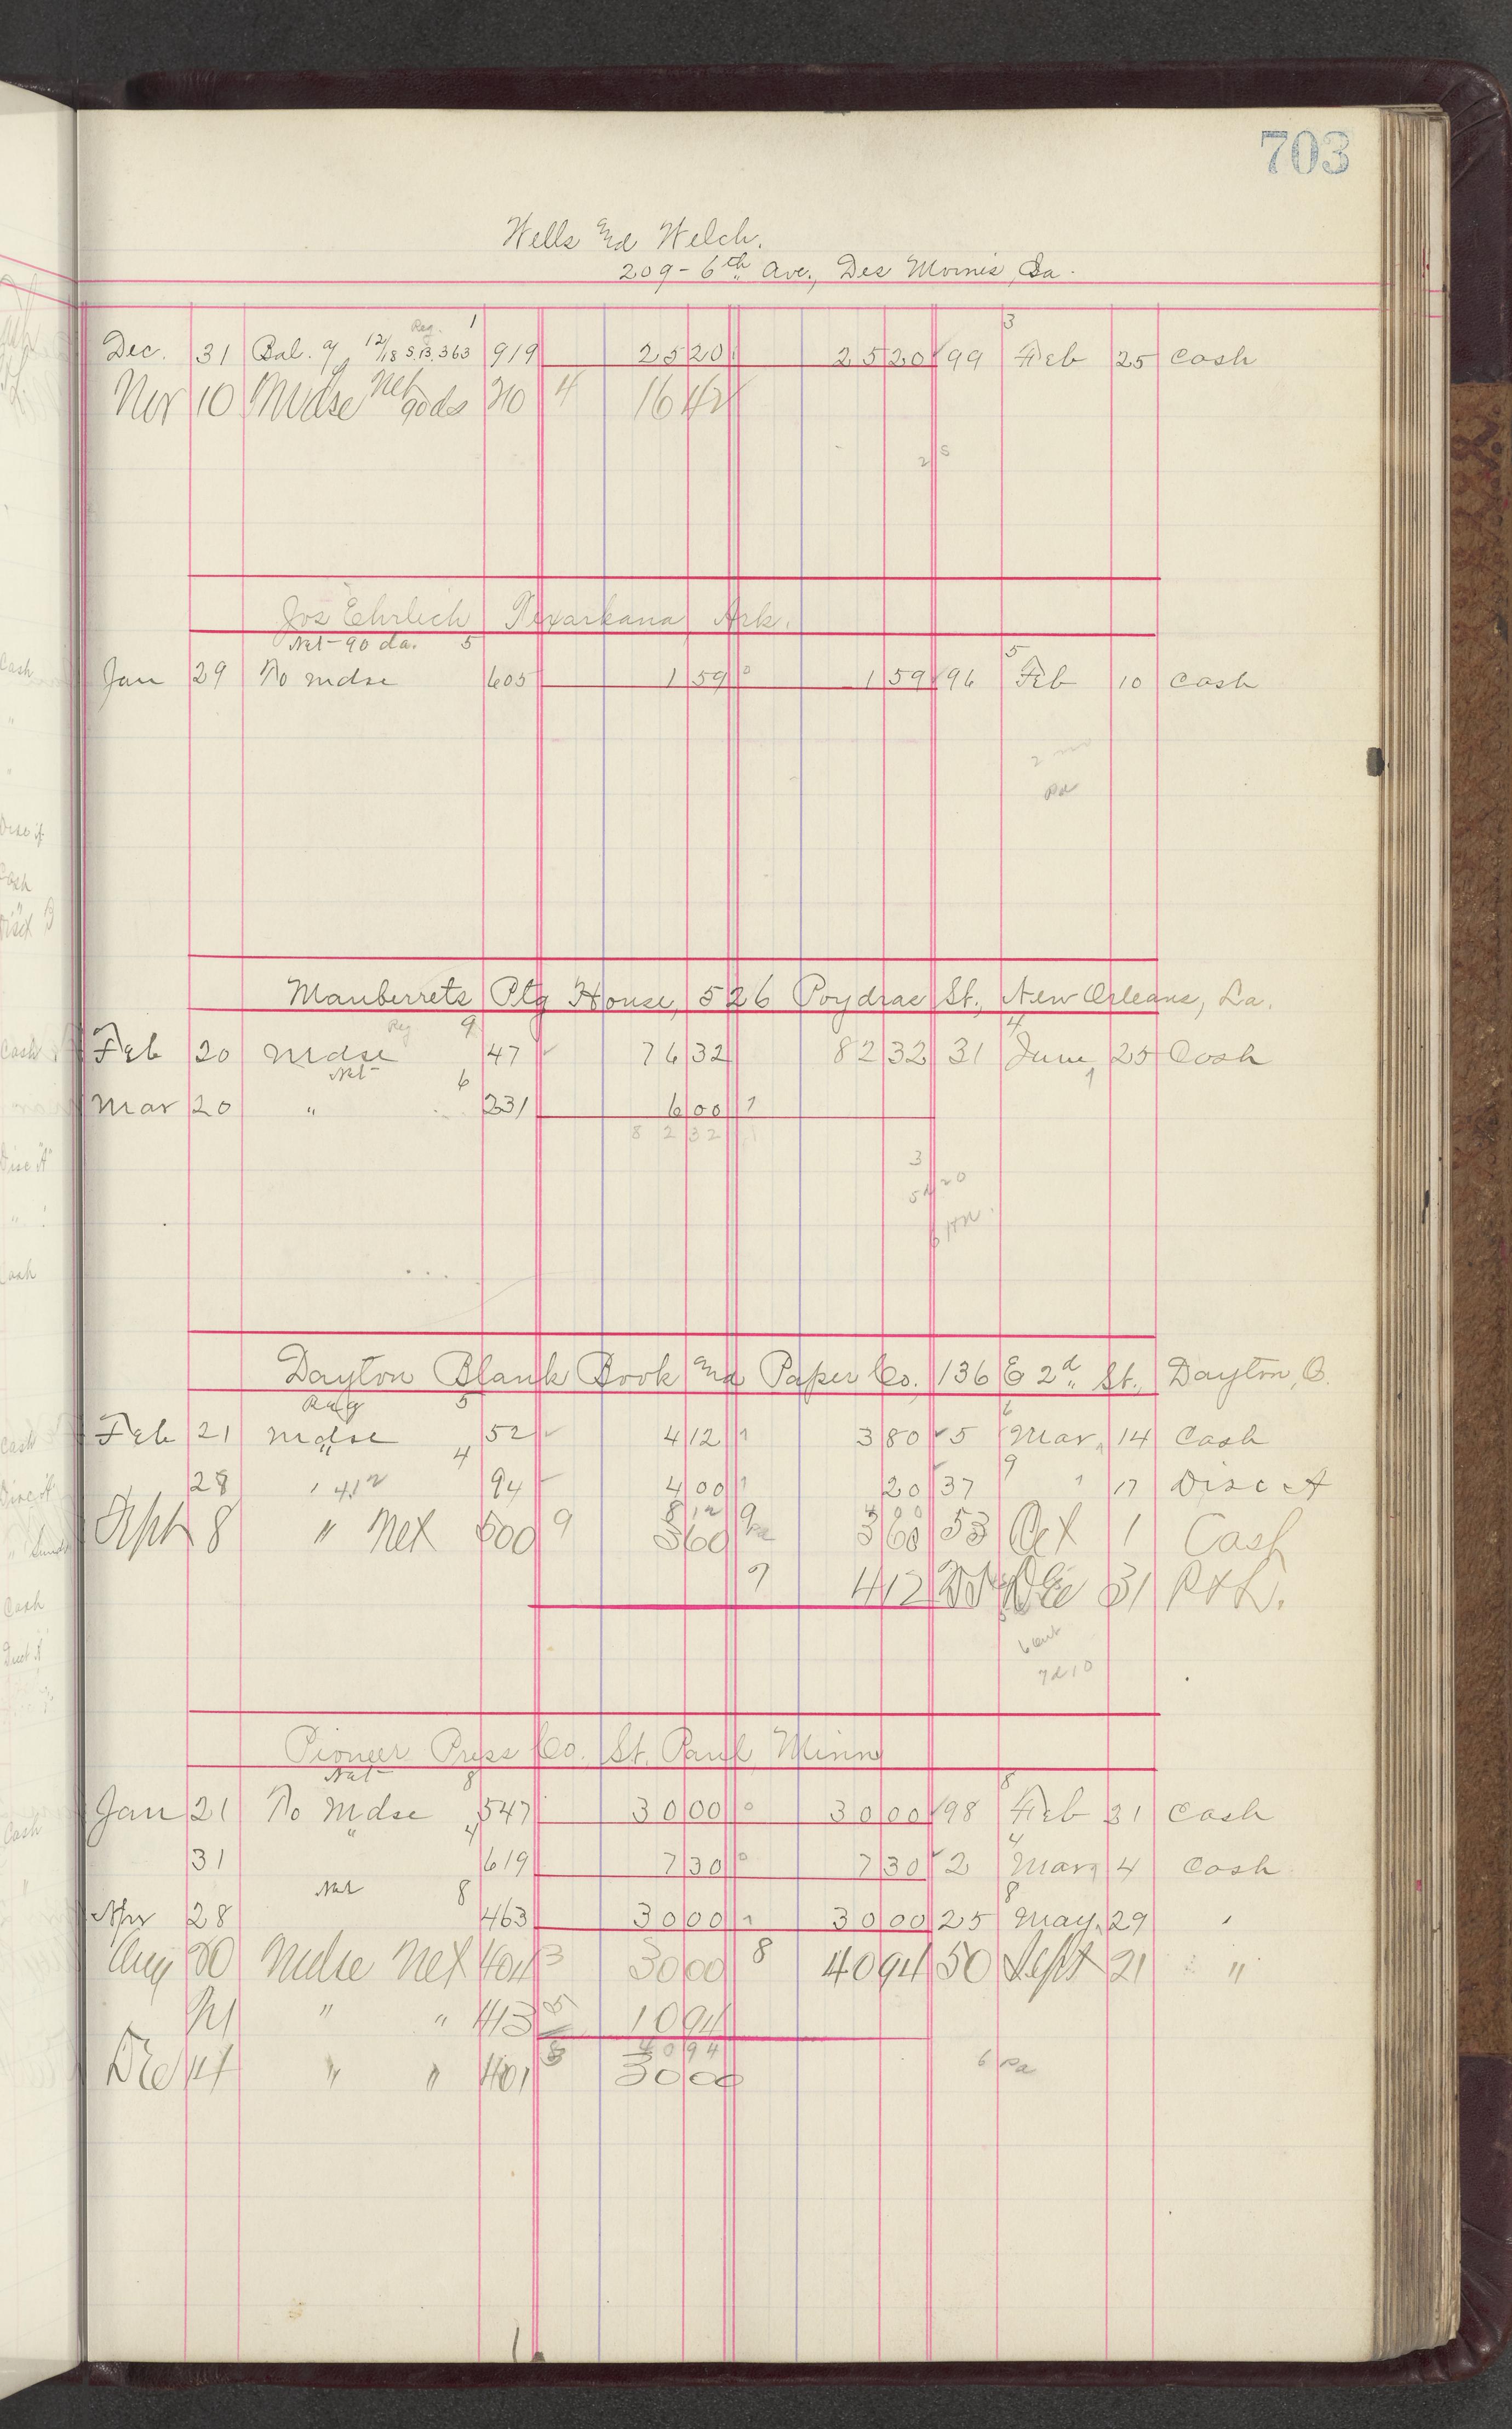 703
Wells and Welch.
209 - 6th Ave., Des Moines, Ia.
Reg. 1 3
Dec. 31 Bal. of 12/18 S.B. 363 919 25 20 25 20 99 Feb 25 Cash
Nov 10 Mdse Net 90 ds 210 4 16 42
2 5
Jos Ehrlich Texarkana Ark.
Net - 90 da. 5 5
Jan 29 To mdse 605 1 59 0 1 59 96 Feb 10 Cash
2
Pd
Mauberrets Ptg House, 526 Poydras St., New Orleans, La.
Reg 9 4
Feb 20 Mdse 47 76 32 82 32 31 June 25 Cash
Net 6 1
Mar 20 " 231 6 00 1
8 2 3 2 1
3
5/20
Dayton Blank Book and Paper Co. 136 E 2d St., Dayton, O.
Reg 5 6
Feb 21 Mdse 52 4 12 1 3 80 5 Mar 14 Cash
" 4 9
28 94 4 00 1 20 37 " 17 Disc A
8 12 4 00
Sept 8 " Net 500 9 3 60 9 3 60 53 Oct 1 Cash
7 4 12 Dec 31 P & L.
7 2 10
Pioneer Press Co. St. Paul Minn
Net 8 8
Jan 21 To Mdse 547 30 00 0 30 00 98 Feb 21 Cash
" 4 4
31 619 7 30 0 7 30 2 Mar 4 Cash
Net 8 8
Apr 28 463 30 00 1 30 00 25 May 29 "
Aug 20 Mdse Net 404 3 30 00 8 40 94 50 Sept 21 "
21 " " 413 5 10 94
4 0 9 4
Dec 14 " " 401 8 30 00
6 Pd